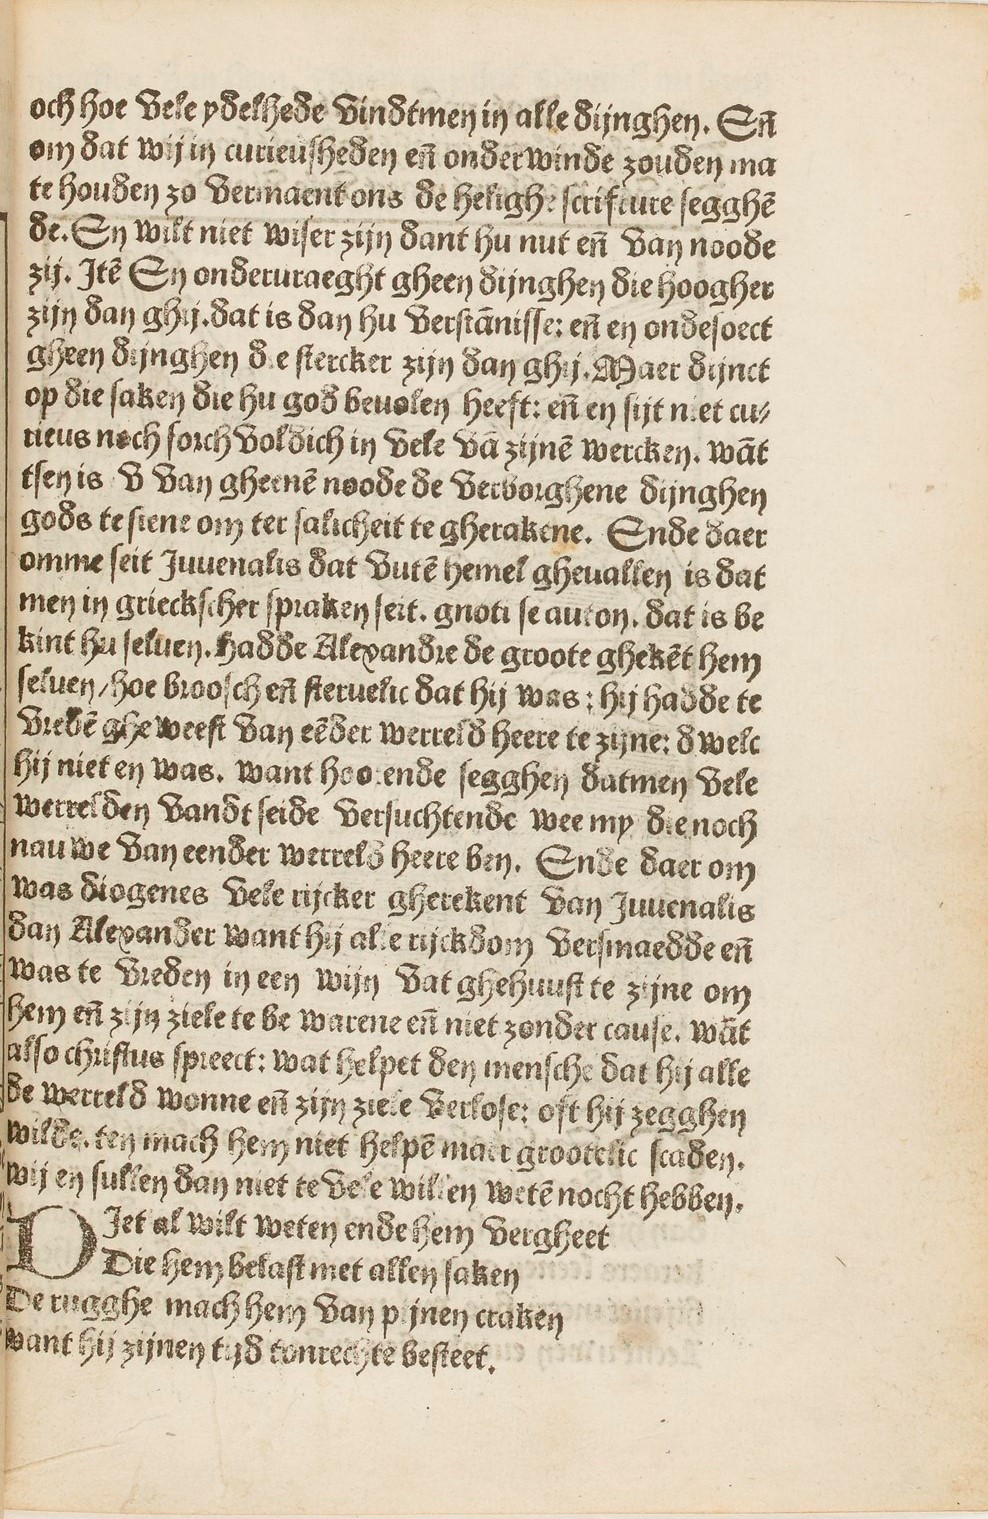 och hoe vele ydelhede vindtmen in alle dijnghen. Eñ
om dat wij in curieusheden eñ onderwinde zouden ma
te houden zo vermaent ons de helighe scrifture segghē
de. En wilt niet wiser zijn dant hu nut eñ van noode
zij. Itē En onderuraeght gheen dijnghen die hoogher
zijn dan ghij. dat is dan hu verstānisse: eñ en ondesoect
gheen dijnghen die stercker zijn dan ghij. Maer dijnct
op die saken die hu god beuolen heeft: eñ en sijt niet cu⸗
rieus noch sorchvoldich in vele vā zijnē wercken. wāt
tsen is v van gheenē noode de verborghene dijnghen
gods te siene om ter salicheit te gherakene. Ende daer
omme seit Juuenalis dat vutē hemel gheuallen is dat
men in grieckscher spraken seit. gnoti seauton. dat is be
kint hu seluen. Hadde Alexandre de groote ghekēt hem
seluen/hoe broosch eñ steruelic dat hij was: hij hadde te
vredē gheweest van eēder werreld heere te zijne: dwelc
hij niet en was. want hoorende segghen datmen vele
werrelden vandt seide versuchtende wee my die noch
nauwe van eender werreld heere ben. Ende daer om
was diogenes vele rijcker gherekent van Juuenalis
dan Alexander want hij alle rijckdom versmaedde eñ
was te vreden in een wijn vat ghehuust te zijne om
hem eñ zijn ziele te bewarene eñ niet zonder cause. wāt
also christus spreect: wat helpet den mensche dat hij alle
de werreld wonne eñ zijn ziele verlose: oft hij zegghen
wilde. ten mach hem niet helpē maer grootelic scaden.
wij en sullen dan niet te vele willen wetē nocht hebben.
DIet al wilt weten ende hem vergheet
Die hem belast met allen saken
De rugghe mach hem van pijnen craken
want hij zijnen tijd tonrechte besteet.